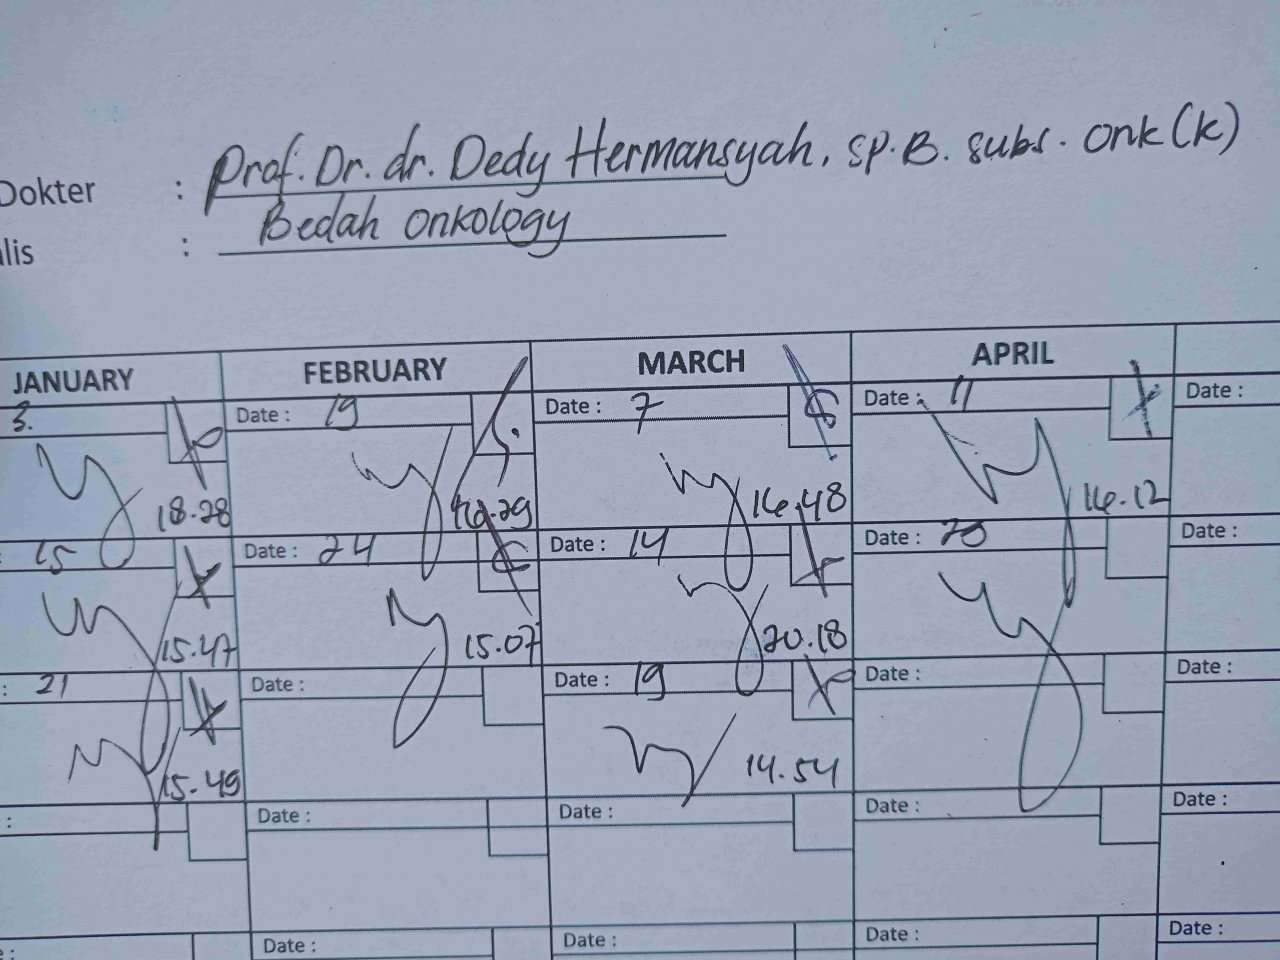 Dokter : Prof. Dr. dr. Dedy Hermansyah, Sp.B. subs. onk (k)
lis : Bedah onkology
JANUARY FEBRUARY MARCH APRIL
3. Date : 19 Date : 7 Date : 11 Date :
18.28 16.29 16.48 16.12
15 Date : 24 Date : 14 Date : 20 Date :
15.47 15.07 20.18
: 21 Date : Date : 19 Date : Date :
15.49 14.54
: Date : Date : Date : Date :
: Date : Date : Date : Date :